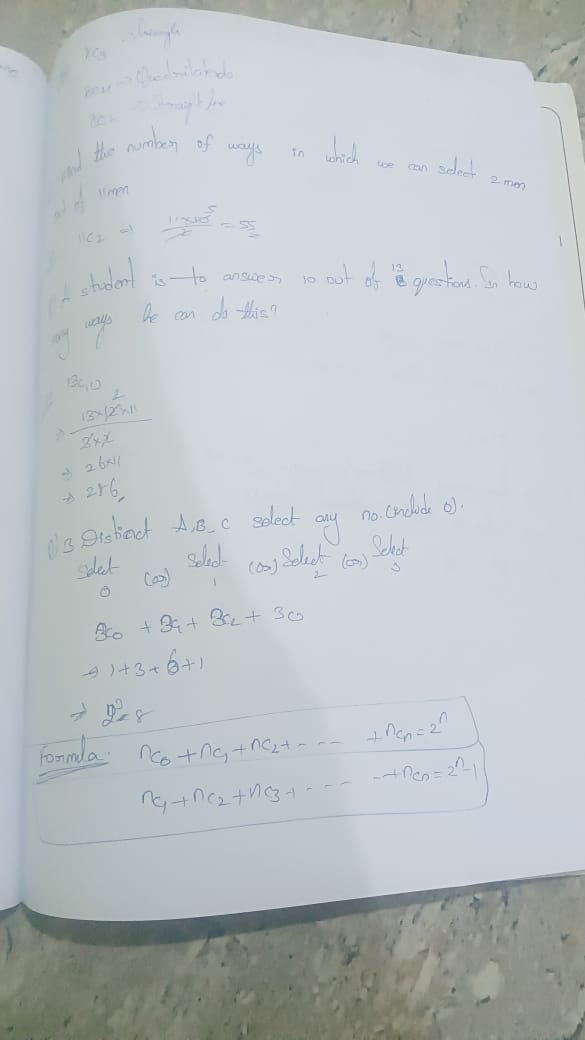 nC3 → Triangle
→ Quadrilaterals
→ Straight line
the number of ways in which we can select 2 men
of 11 men
11C2 ⇒ 11×10 5 / 2 = 55
A student is to answer 10 out of 13 questions. In how
ways he can do this?
13C10
⇒ 13×12×11 2 / 3×2
⇒ 26×11
⇒ 286
3 Distinct A, B, C select any no. (include 0).
Select 0 (or) Select 1 (or) Select 2 (or) Select 3
3C0 + 3C1 + 3C2 + 3C3
⇒ 1+3+6+1
⇒ 2³ = 8
Formula: nC0 + nC1 + nC2 + - - - + nCn = 2ⁿ
nC1 + nC2 + nC3 + - - - - + nCn = 2ⁿ-1